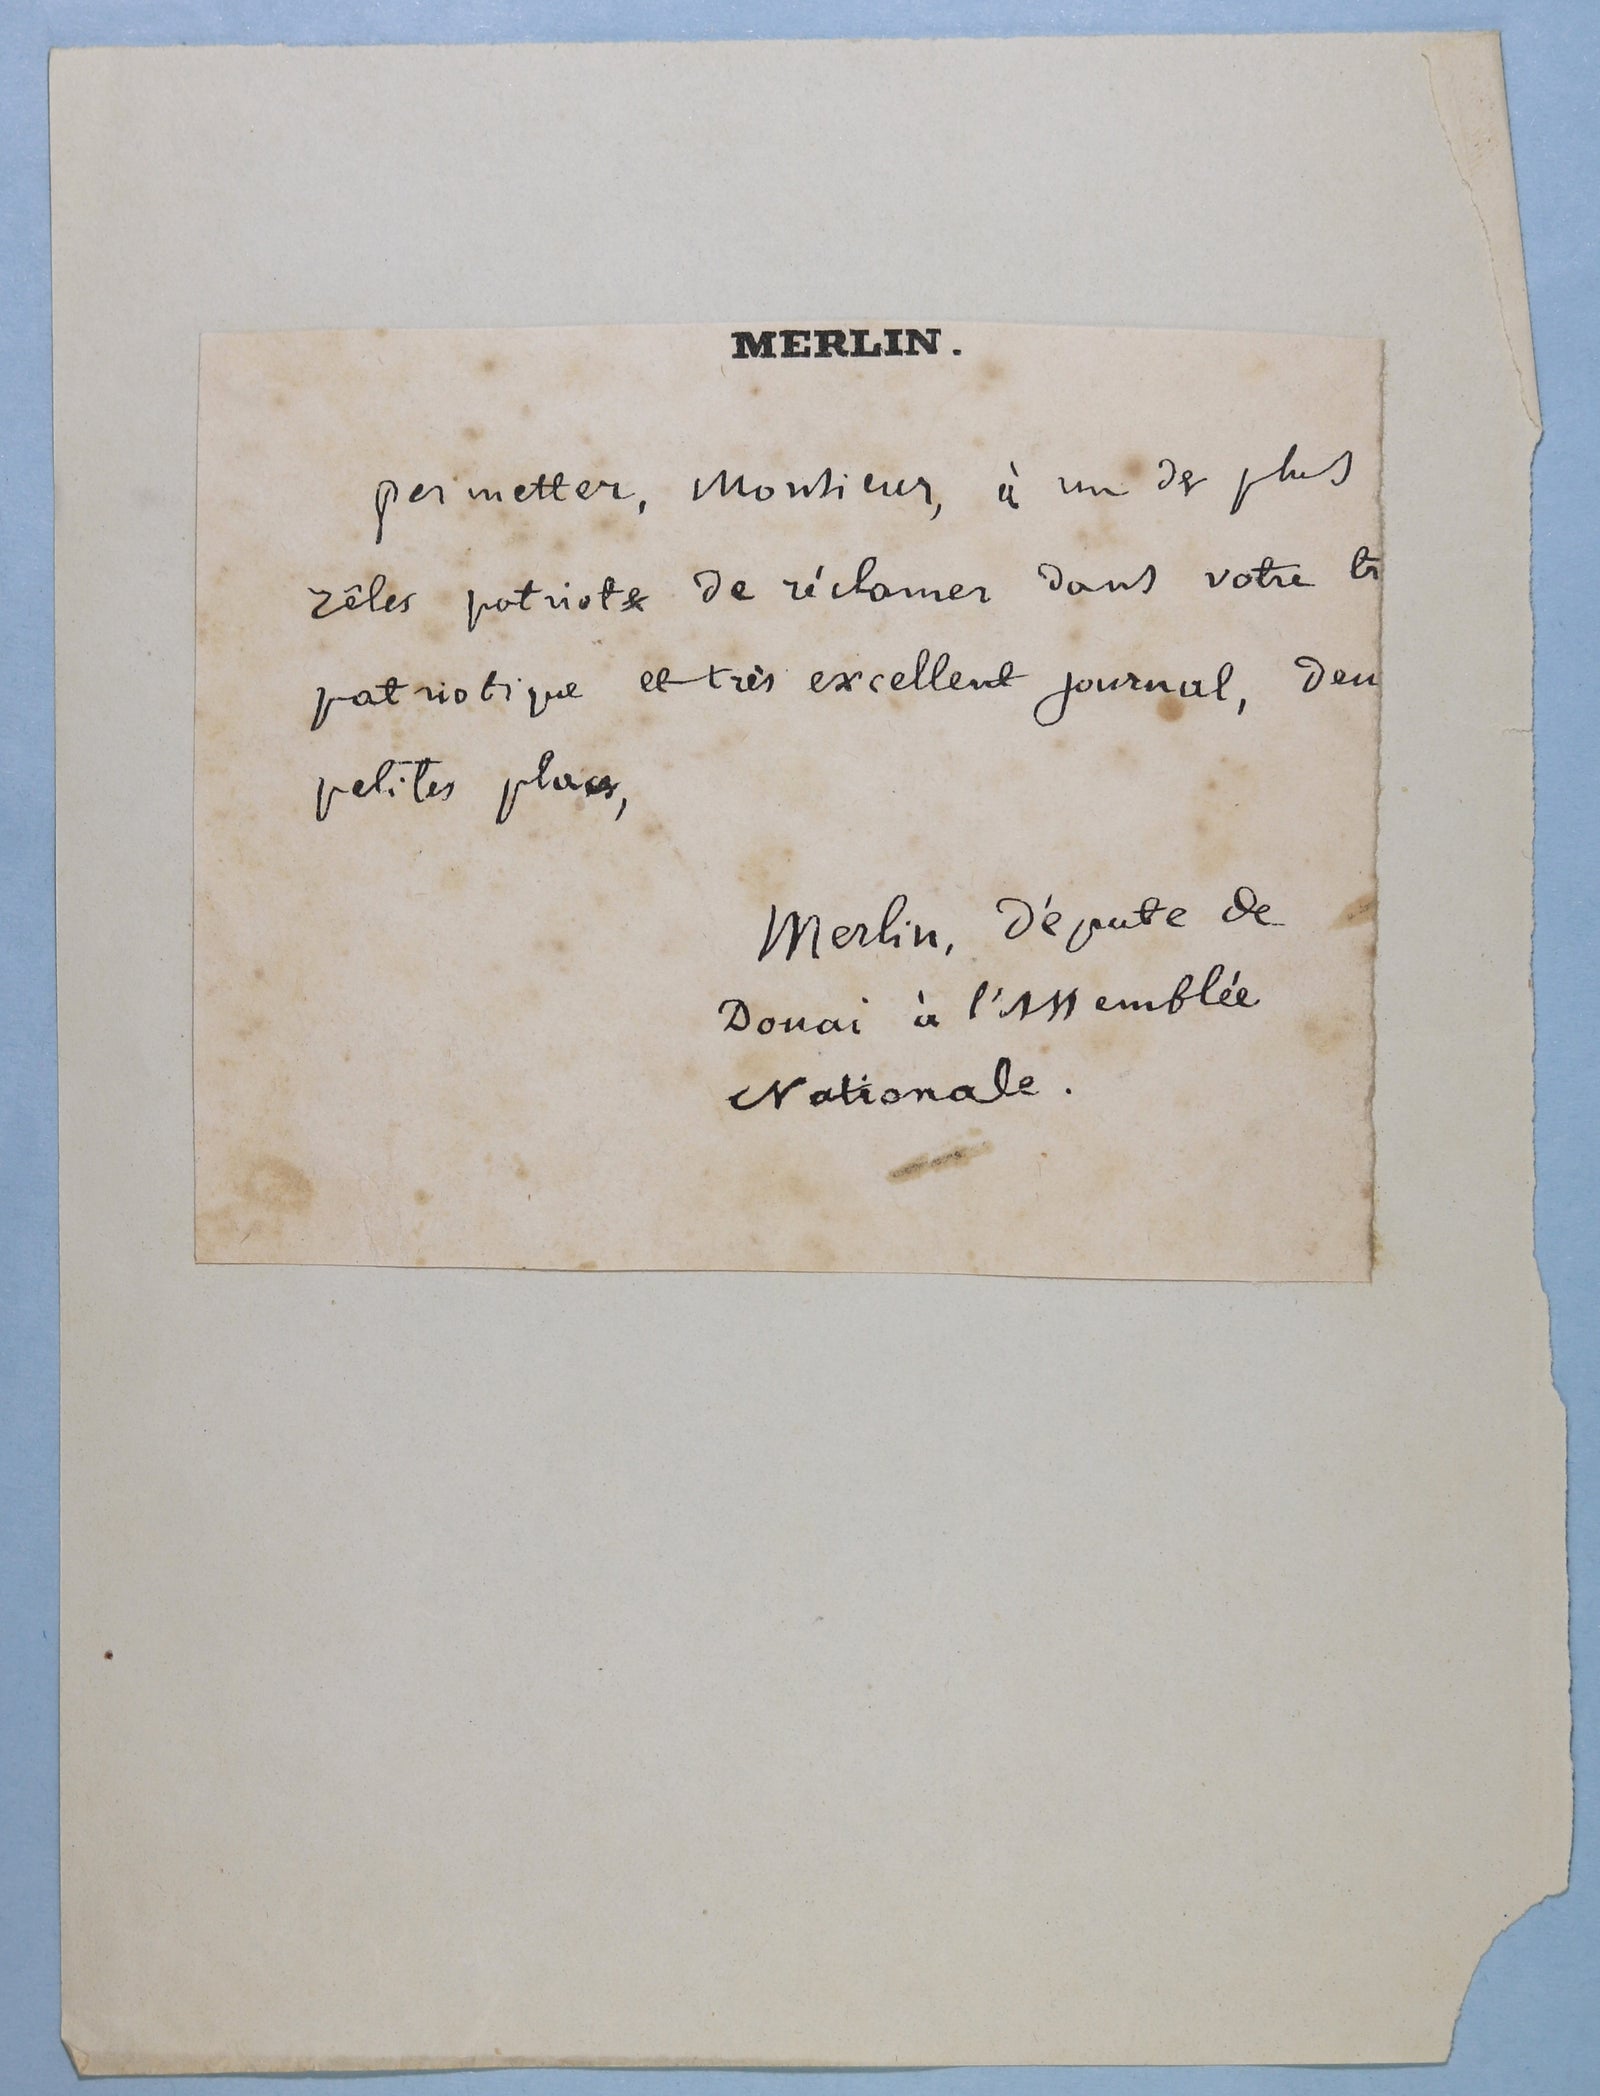 MERLIN.
permetter, Monsieur, à un des plus
zêles patriotes de réclamer dans votre tr
patriotique et très excellent journal, deu
petites places,
Merlin, député de
Douai à l'Assemblée
Nationale.